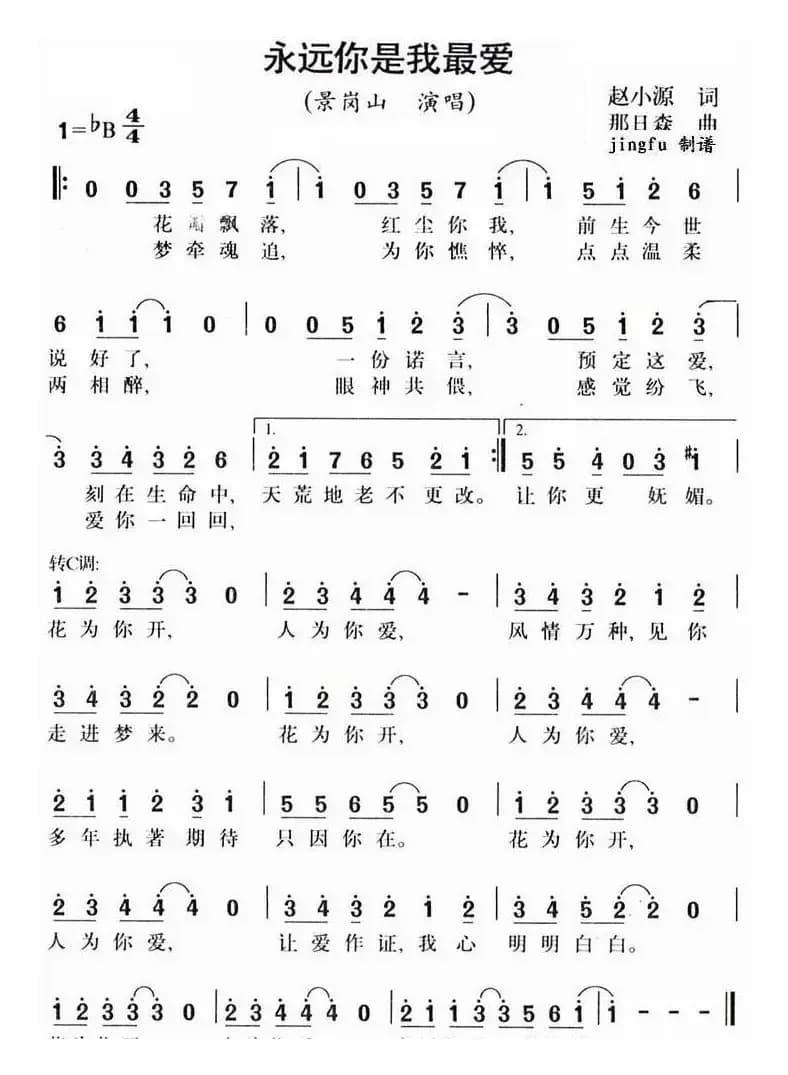 永远你是我最爱
(景岗山 演唱)
赵小源 词
1=♭B 4/4
那日森 曲
jingfu 制谱
0 0 3 5 7 1 | 1 0 3 5 7 1 | 1 5 1 2 6 |
花 飘落, 红尘你我, 前生今世
梦牵魂追, 为你憔悴, 点点温柔
6 1 1 1 0 | 0 0 5 1 2 3 | 3 0 5 1 2 3
说好了, 一份诺言, 预定这爱,
两相醉, 眼神共偎, 感觉纷飞,
1. 2.
3 3 4 3 2 6 | 2 1 7 6 5 2 1 :| 5 5 4 0 3 #1 |
刻在生命中, 天荒地老不更改。 让你更 妩媚。
爱你一回回,
转C调:
1 2 3 3 3 0 | 2 3 4 4 4 - | 3 4 3 2 1 2 |
花为你开, 人为你爱, 风情万种,见你
3 4 3 2 2 0 | 1 2 3 3 3 0 | 2 3 4 4 4 - |
走进梦来。 花为你开, 人为你爱,
2 1 1 2 3 1 | 5 5 6 5 5 0 | 1 2 3 3 3 0 |
多年执著期待 只因你在。 花为你开,
2 3 4 4 4 0 | 3 4 3 2 1 2 | 3 4 5 2 2 0 |
人为你爱, 让爱作证,我心 明明白白。
1 2 3 3 3 0 | 2 3 4 4 4 0 | 2 1 1 3 3 5 6 1 | 1 - - - |